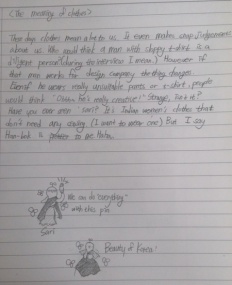 <The meaning of clothes>
These days clothes mean a lot to us. It even makes snap judgements
about us. We would think a man with sloppy t-shirt is a
different person (during the interview I mean.) However if
that man works for design company, the thing changes.
Even if he wears really unsuitable pants or t-shirt, people
would think "Ooh.. he's really creative!" Strange, isn't it?
Have you ever seen "Sari"? It's Indian women's clothes that
don't need any sewing (I want to wear one) But I say
Han-bok is prettier to me. Haha.
We can do "everything"
with this pin
Sari
Beauty of Korea!